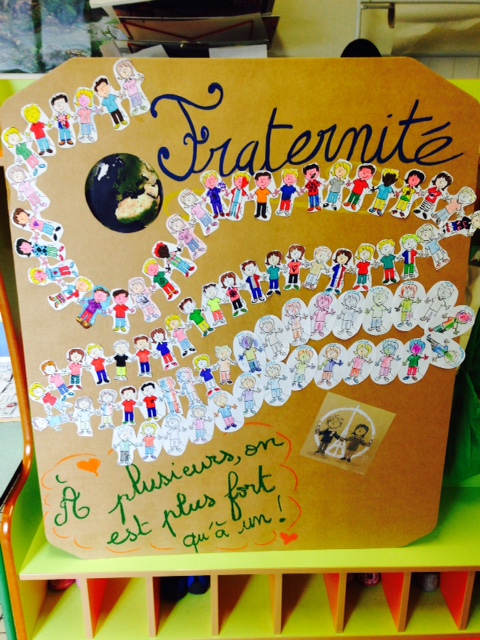 Fraternité
À plusieurs, on
est plus fort
qu'à un !